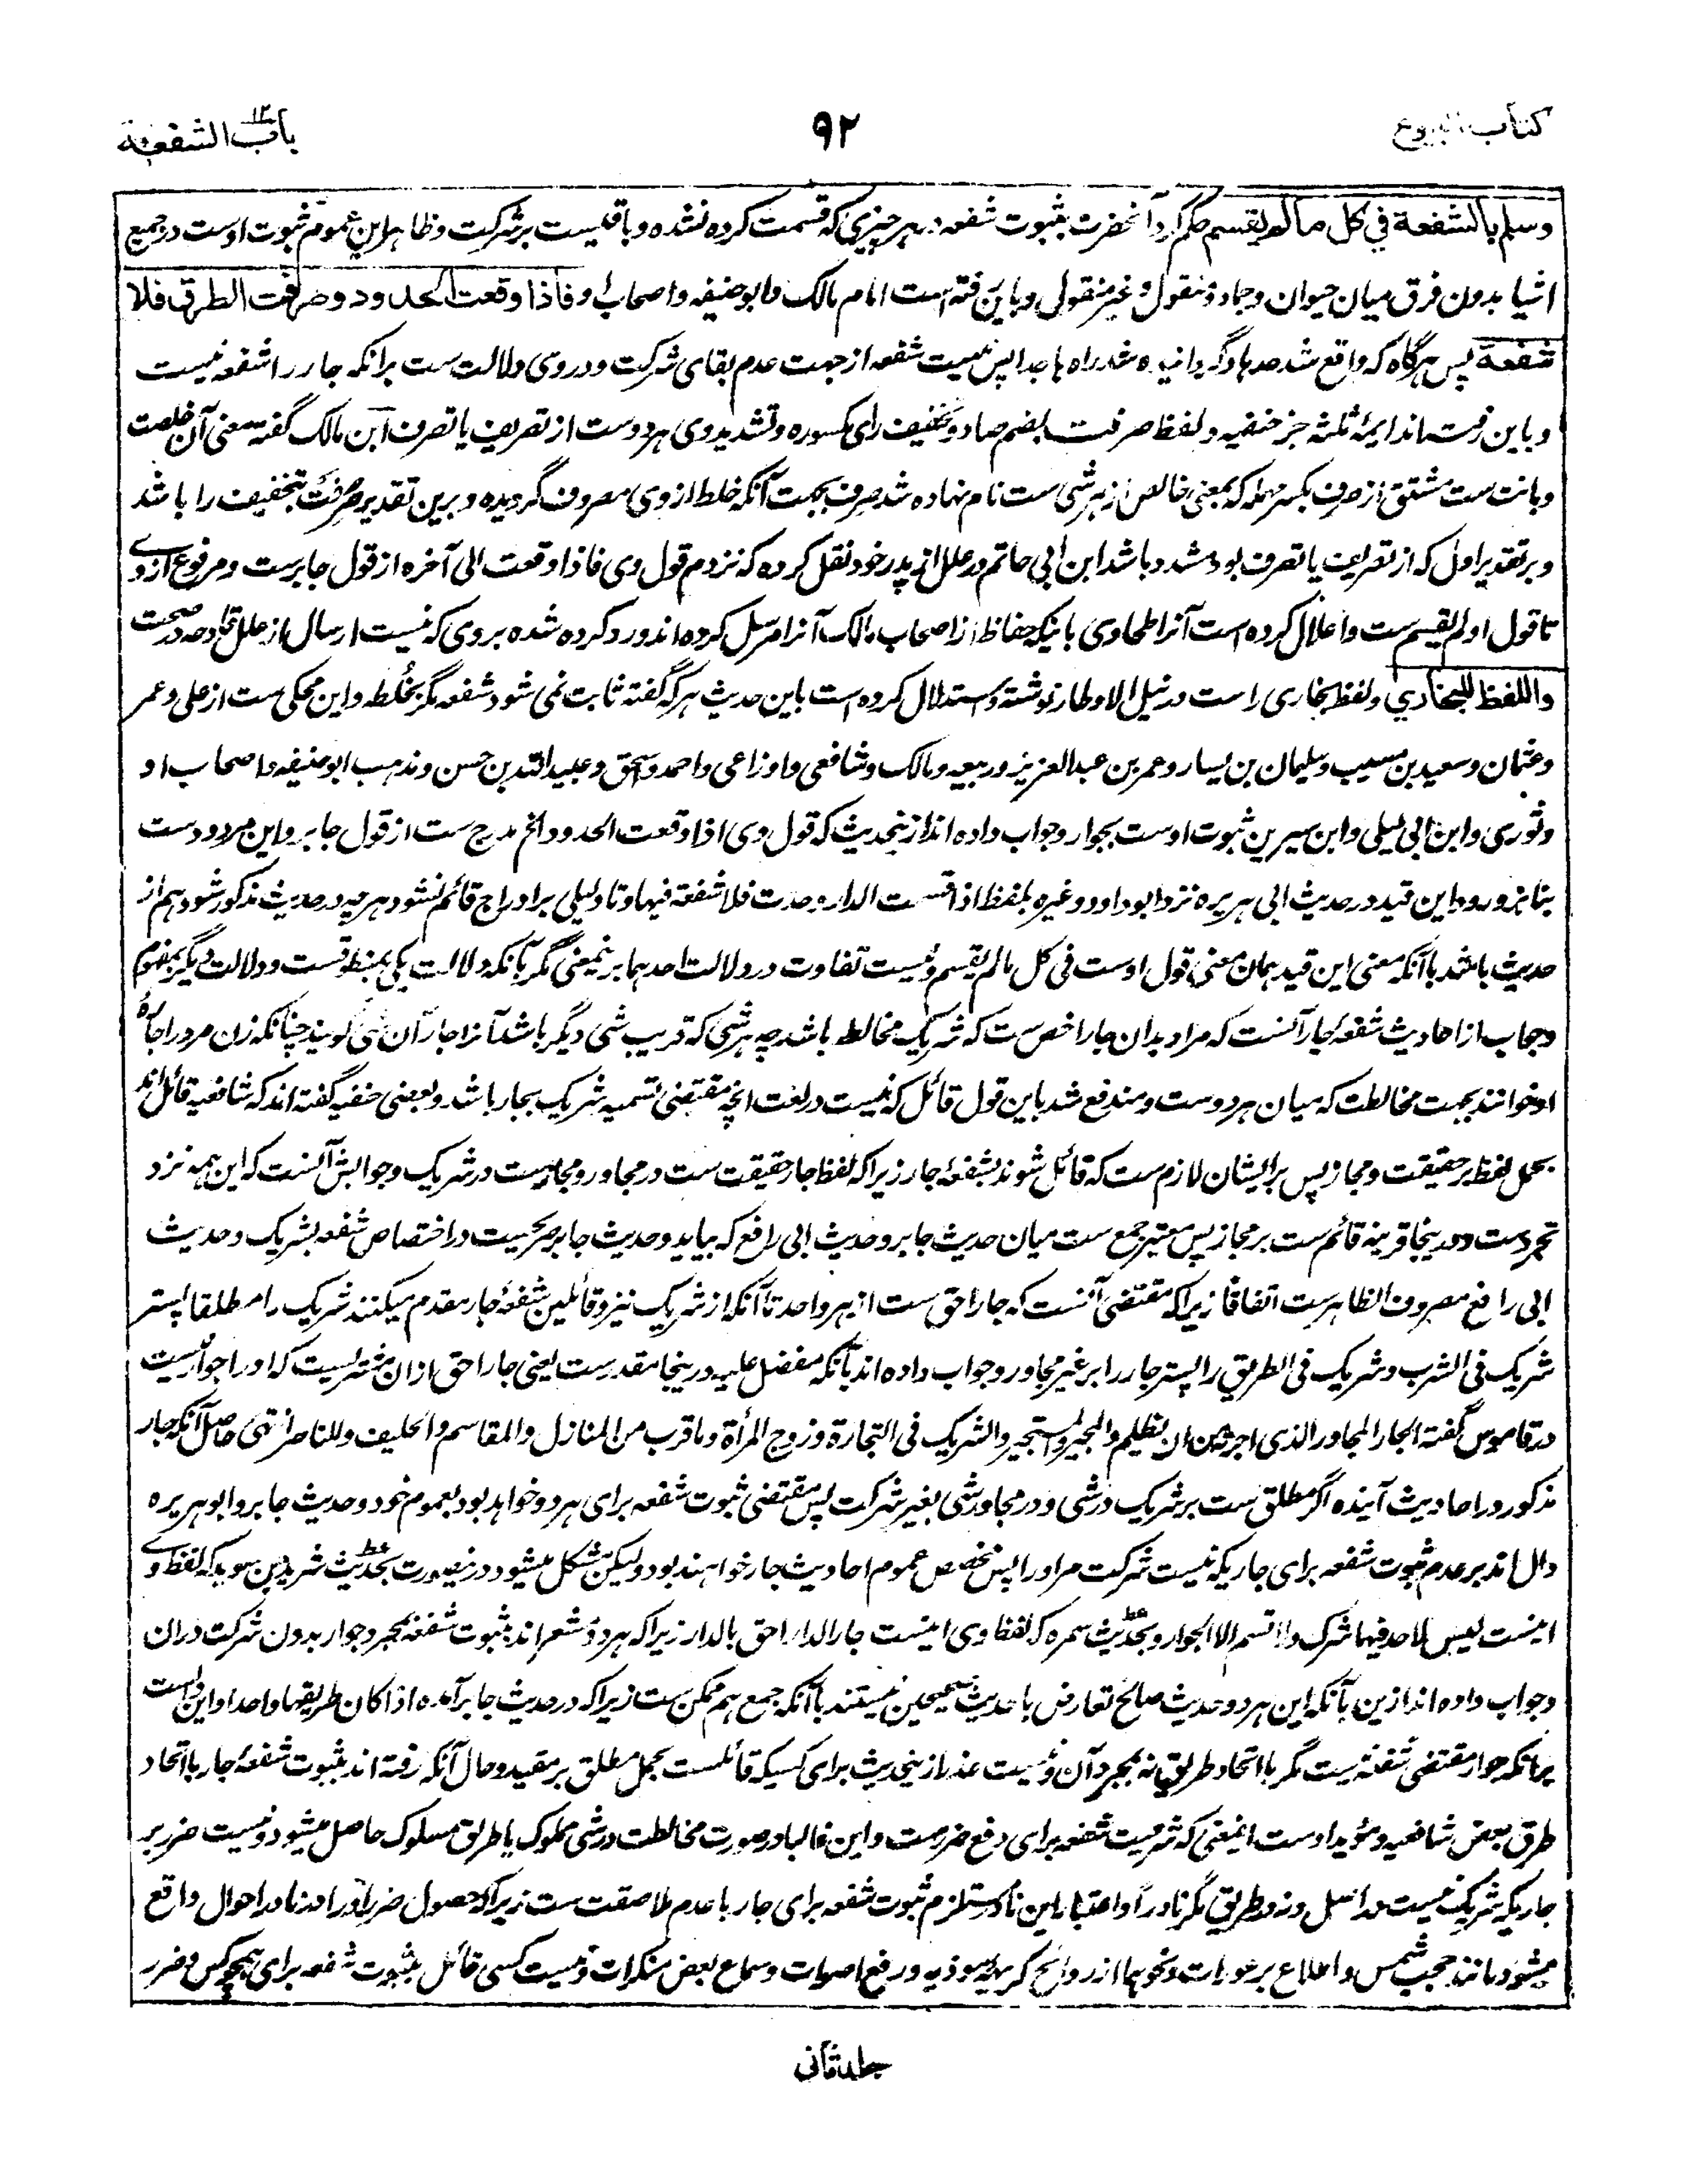 كتاب البيوع
٩٢
باب الشفعة
وسلم بالشفعة في كل ما لم يقسم حکم کرد آنحضرت بثبوت شفعه در هر چیزی که قسمت کرده نشده و باقیست بر شرکت و ظاهر این عموم ثبوت اوست در جمیع
اشیا بدون فرق میان حیوان و جماد و منقول و غیر منقول و باین رفته است امام مالک و ابو حنیفه و اصحاب او فاذا وقعت الحدود وصرفت الطرق فلا
شفعة پس هرگاه که واقع شد حدها و گردانیده شد راه ها جدا پس نیست شفعه از جهت عدم بقای شرکت و در وی دلالت ست برانکه جار را شفعه نیست
و باین رفته اند ایمهٔ ثلثه جز حنفیه و لفظ صرفت بضم صاد و تخفیف رای مکسوره و تشدید وی هر دوست از تصریف یا تصرف ابن مالک گفته معنی آن خلصت
و بانت ست مشتق از صرف بکسر مهمله که بمعنی خالص از هر شی ست نام نهاده شد صرف بجهت آنکه خلط از وی مصروف گردیده و برین تقدیر صرفت بتخفیف را باشد
و بر تقدیر اول که از تصریف یا تصرف بود مشدد باشد ابن ابی حاتم در علل از پدر خود نقل کرده که نزدم قول وی فاذا وقعت الی آخره از قول جابرست و مرفوع از وے
تا قول او لم یقسم ست و اعلال کرده است آنرا طحاوی باینکه حفاظ از اصحاب مالک آنرا مرسل کرده اند و رد کرده شده بروی که نیست ارسال از علل قادحه در صحت
واللفظ للبخاري و لفظ بخاری راست در نیل الاوطار نوشته و استدلال کرده است باین حدیث هر که گفته ثابت نمی شود شفعه مگر بخلطه و این محکی ست از علی و عمر
و عثمان و سعید بن مسیب و سلیمان بن یسار و عمر بن عبدالعزیز و ربیعه و مالک و شافعی و اوزاعی و احمد و اسحق و عبیدالله بن حسن و مذهب ابوحنیفه و اصحاب او
و ثوری و ابن ابی لیلی و ابن سیرین ثبوت اوست بجوار و جواب داده اند ازینحدیث که قول وی اذا وقعت الحدود الخ مدرج ست از قول جابر و این مردودست
بنابر ورود این قید در حدیث ابی هریره نزد ابوداود و غیره بلفظ اذا قسمت الدار وحدت فلا شفعة فیها و تا دلیلی بر ادراج قائم نشود هرچه در حدیث مذکور شود هم از
حدیث باشد با آنکه معنی این قید همان معنی قول اوست فی کل ما لم یقسم و نیست تفاوت در دلالت احدهما برینمعنی مگر بآنکه دلالت یکی بمنطوقست و دلالت دیگر بمفهوم
و جواب از احادیث شفعهٔ جار آنست که مراد بدان جار اخص ست که شریک مخالط باشد چه هر شی که قریب شی دیگر باشد آنرا جار آن شی گویند چنانکه زن مرد را جارهٔ
او خوانند بجهت مخالطت که میان هر دوست و مندفع شد باین قول قائل که نیست در لغت انچه مقتضی تسمیه شریک بجار باشد و بعضی حنفیه گفته اند که شافعیه قائل اند
بحمل لفظ بر حقیقت و مجاز پس بر ایشان لازم ست که قائل شوند بشفعهٔ جار زیرا که لفظ جار حقیقت ست در مجاور و مجازست در شریک و جوابش آنست که این همه نزد
تجردست و در ینجا قرینه قائم ست بر مجاز پس معتبر جمع ست میان حدیث جابر و حدیث ابی رافع که بیاید و حدیث جابر صریحست در اختصاص شفعه بشریک و حدیث
ابی رافع مصروف الظاهرست اتفاقا زیرا که مقتضی آنست که جار احق ست از هر واحد تا آنکه از شریک نیز و قائلین شفعهٔ جار مقدم میکنند شریک را مطلقا پستر
شریک فی الشرب و شریک فی الطریق را پستر جار را بر غیر مجاور و جواب داده اند بآنکه مفضل علیه درینجا مقدرست یعنی جار احق ازان مشتریست که او را جوار نیست
در قاموس گفته الجار المجاور الذی اجرته من ان یظلم و المجیر و المستجیر والشریک فی التجارة و زوج المرأة وما قرب من المنازل والمقاسم والحلیف والناصر انتهی حاصل آنکه جار
مذکور در احادیث آینده اگر مطلق ست بر شریک در شی و در مجاور شی بغیر شرکت پس مقتضی ثبوت شفعه برای هر دو خواهد بود بعموم خود و حدیث جابر و ابو هریره
دال اند بر عدم ثبوت شفعه برای جاریکه نیست شرکت مر او را پس مخصص عموم احادیث جار خواهند بود ولیکن مشکل میشود درینصورت بحدیث شرید بن سوید که لفظ وے
اینست لیس لاحد فیها شرک ولا قسم الا الجوار و بحدیث سمره که لفظ وی اینست جار الدار احق بالدار زیرا که هر دو مشعر اند بثبوت شفعه بمجرد جوار بدون شرکت دران
و جواب داده اند ازین بآنکه این هر دو حدیث صالح تعارض با حدیث صحیحین نیستند با آنکه جمع هم ممکن ست زیرا که در حدیث جابر آمده اذا کان طریقهما واحدا و این دالست
برانکه جوار مقتضی شفعه نیست مگر با اتحاد طریق نه بمجرد آن و نیست عذر ازینحدیث برای کسیکه قائلست بحمل مطلق بر مقید و حال آنکه رفته اند بثبوت شفعهٔ جار با اتحاد
طرق بعض شافعیه و مؤید اوست اینمعنی که شرعیت شفعه برای دفع ضررست و این غالبا در صورت مخالطت در شی مملوک یا طریق مسلوک حاصل میشود و نیست ضرر بر
جاریکه شریک نیست در اصل و نه در طریق مگر نادراً و اعتبار این نادر مستلزم ثبوت شفعه برای جار با عدم ملاصقت ست زیرا که حصول ضرر او را در نادر احوال واقع
میشود مانند حجب شمس و اطلاع بر عورات و نحوهما از روائح کریههٔ موذیه و رفع اصوات و سماع بعض منکرات و نیست کسی قائل بثبوت شفعه برای همچو کس و ضرر
جلد ثانی